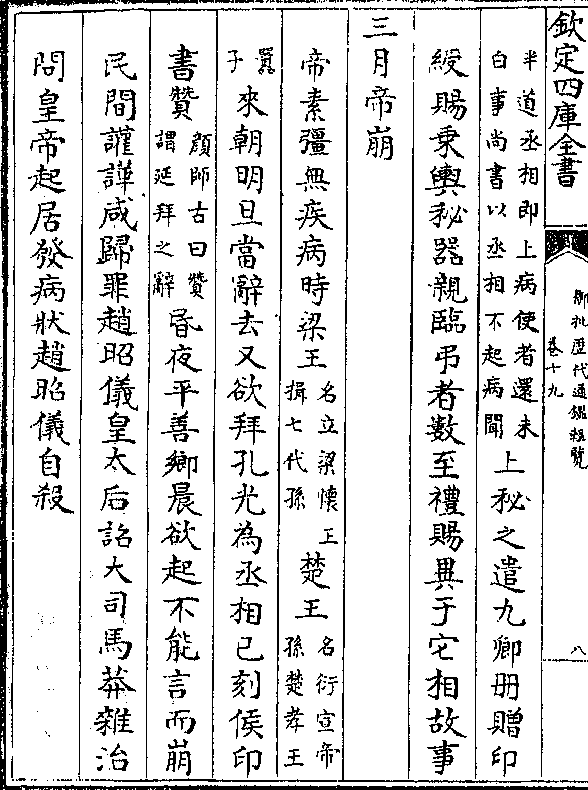 欽定四庫全書
御批歷代通鑑輯覽
卷十九
八
半道丞相即上病使者還未
白事尚書以丞相不起病聞
上秘之遣九卿册贈印
綬賜乗輿秘器親臨弔者數至禮賜異于它相故事
三月帝崩
帝素彊無疾病時梁王
名立梁懷王
揖七代孫
楚王
名衍宣帝
孫楚孝王
囂
子
來朝明旦當辭去又欲拜孔光為丞相已刻侯印
書贊
顔師古曰贊
謂延拜之辭
昏夜平善鄉晨欲起不能言而崩
民間讙譁咸歸罪趙昭儀皇太后詔大司馬莽雜治
問皇帝起居發病狀趙昭儀自殺